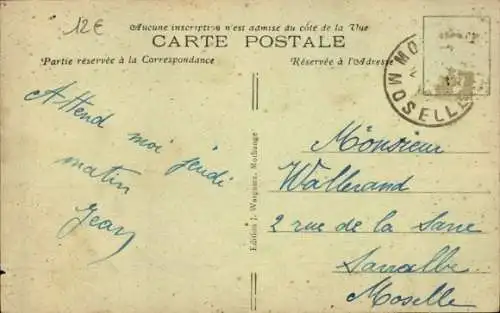 12€
Aucune inscription n'est admise du côté de la Vue
CARTE POSTALE
Partie réservée à la Correspondance
Réservée à l'Adresse
MOSELLE
Attend moi jeudi
matin
Jean
Edition J. Morhange
Monsieur
Wallerand
2 rue de la Sarre
Sarralbe
Moselle